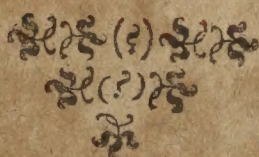 (?)
(?)